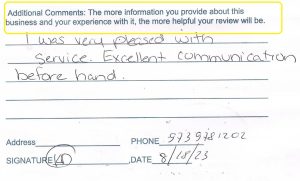 Additional Comments: The more information you provide about this
business and your experience with it, the more helpful your review will be.
I was very pleased with
Service. Excellent communication
before hand.
Address
PHONE 973 978 1202
SIGNATURE
DATE 8/18/23